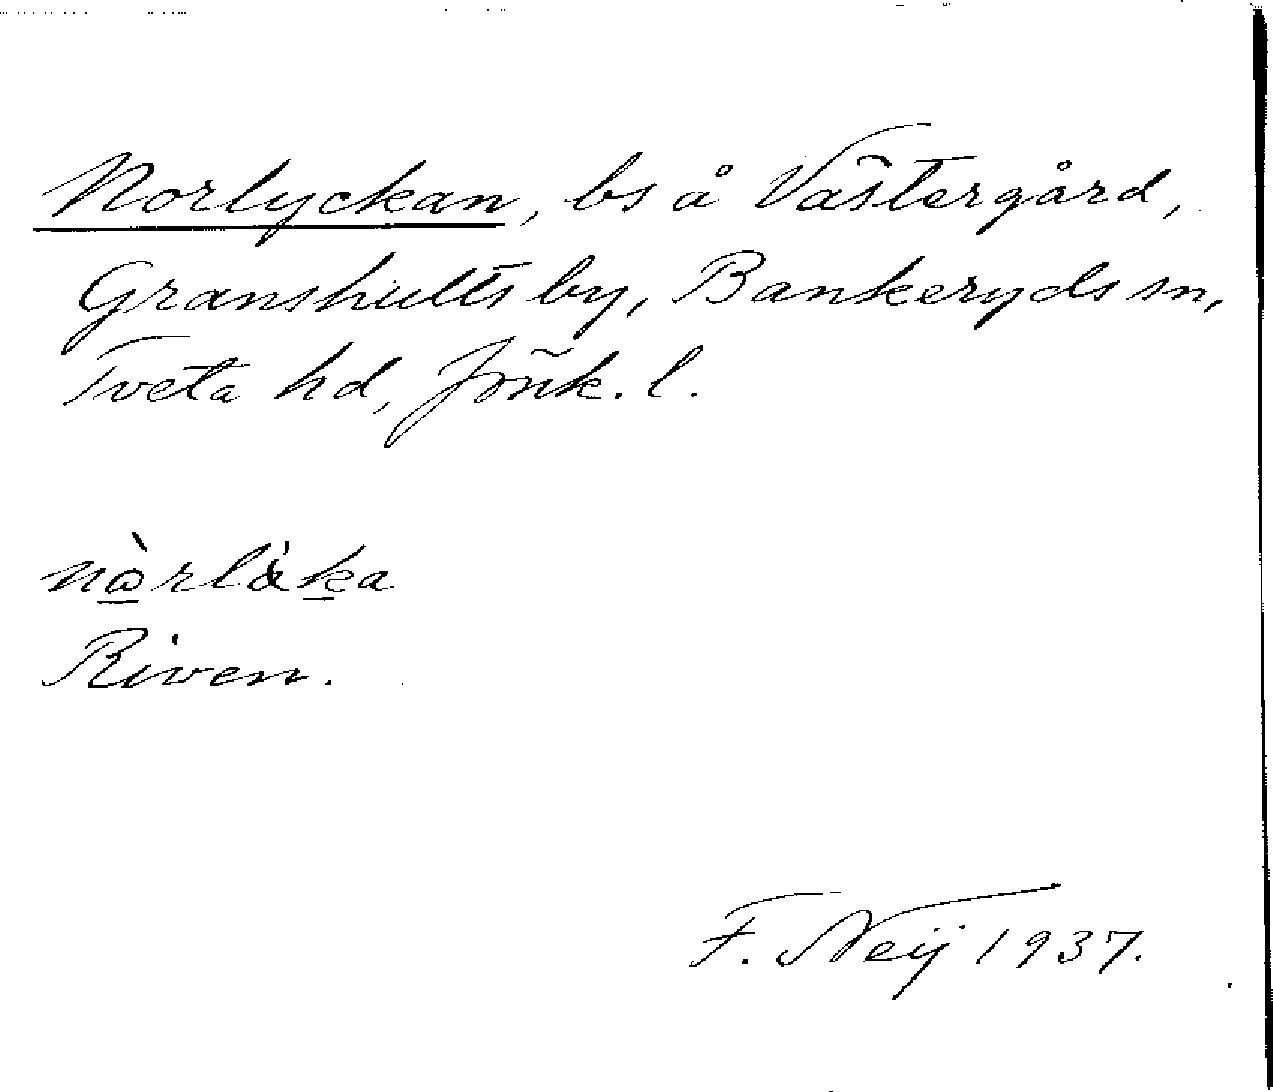 Norlyckan, bs å Västergård,
Granshults by, Bankeryds sn,
Tveta hd, Jönk. l.
nàrlàka
Riven.
F. Neij 1937.